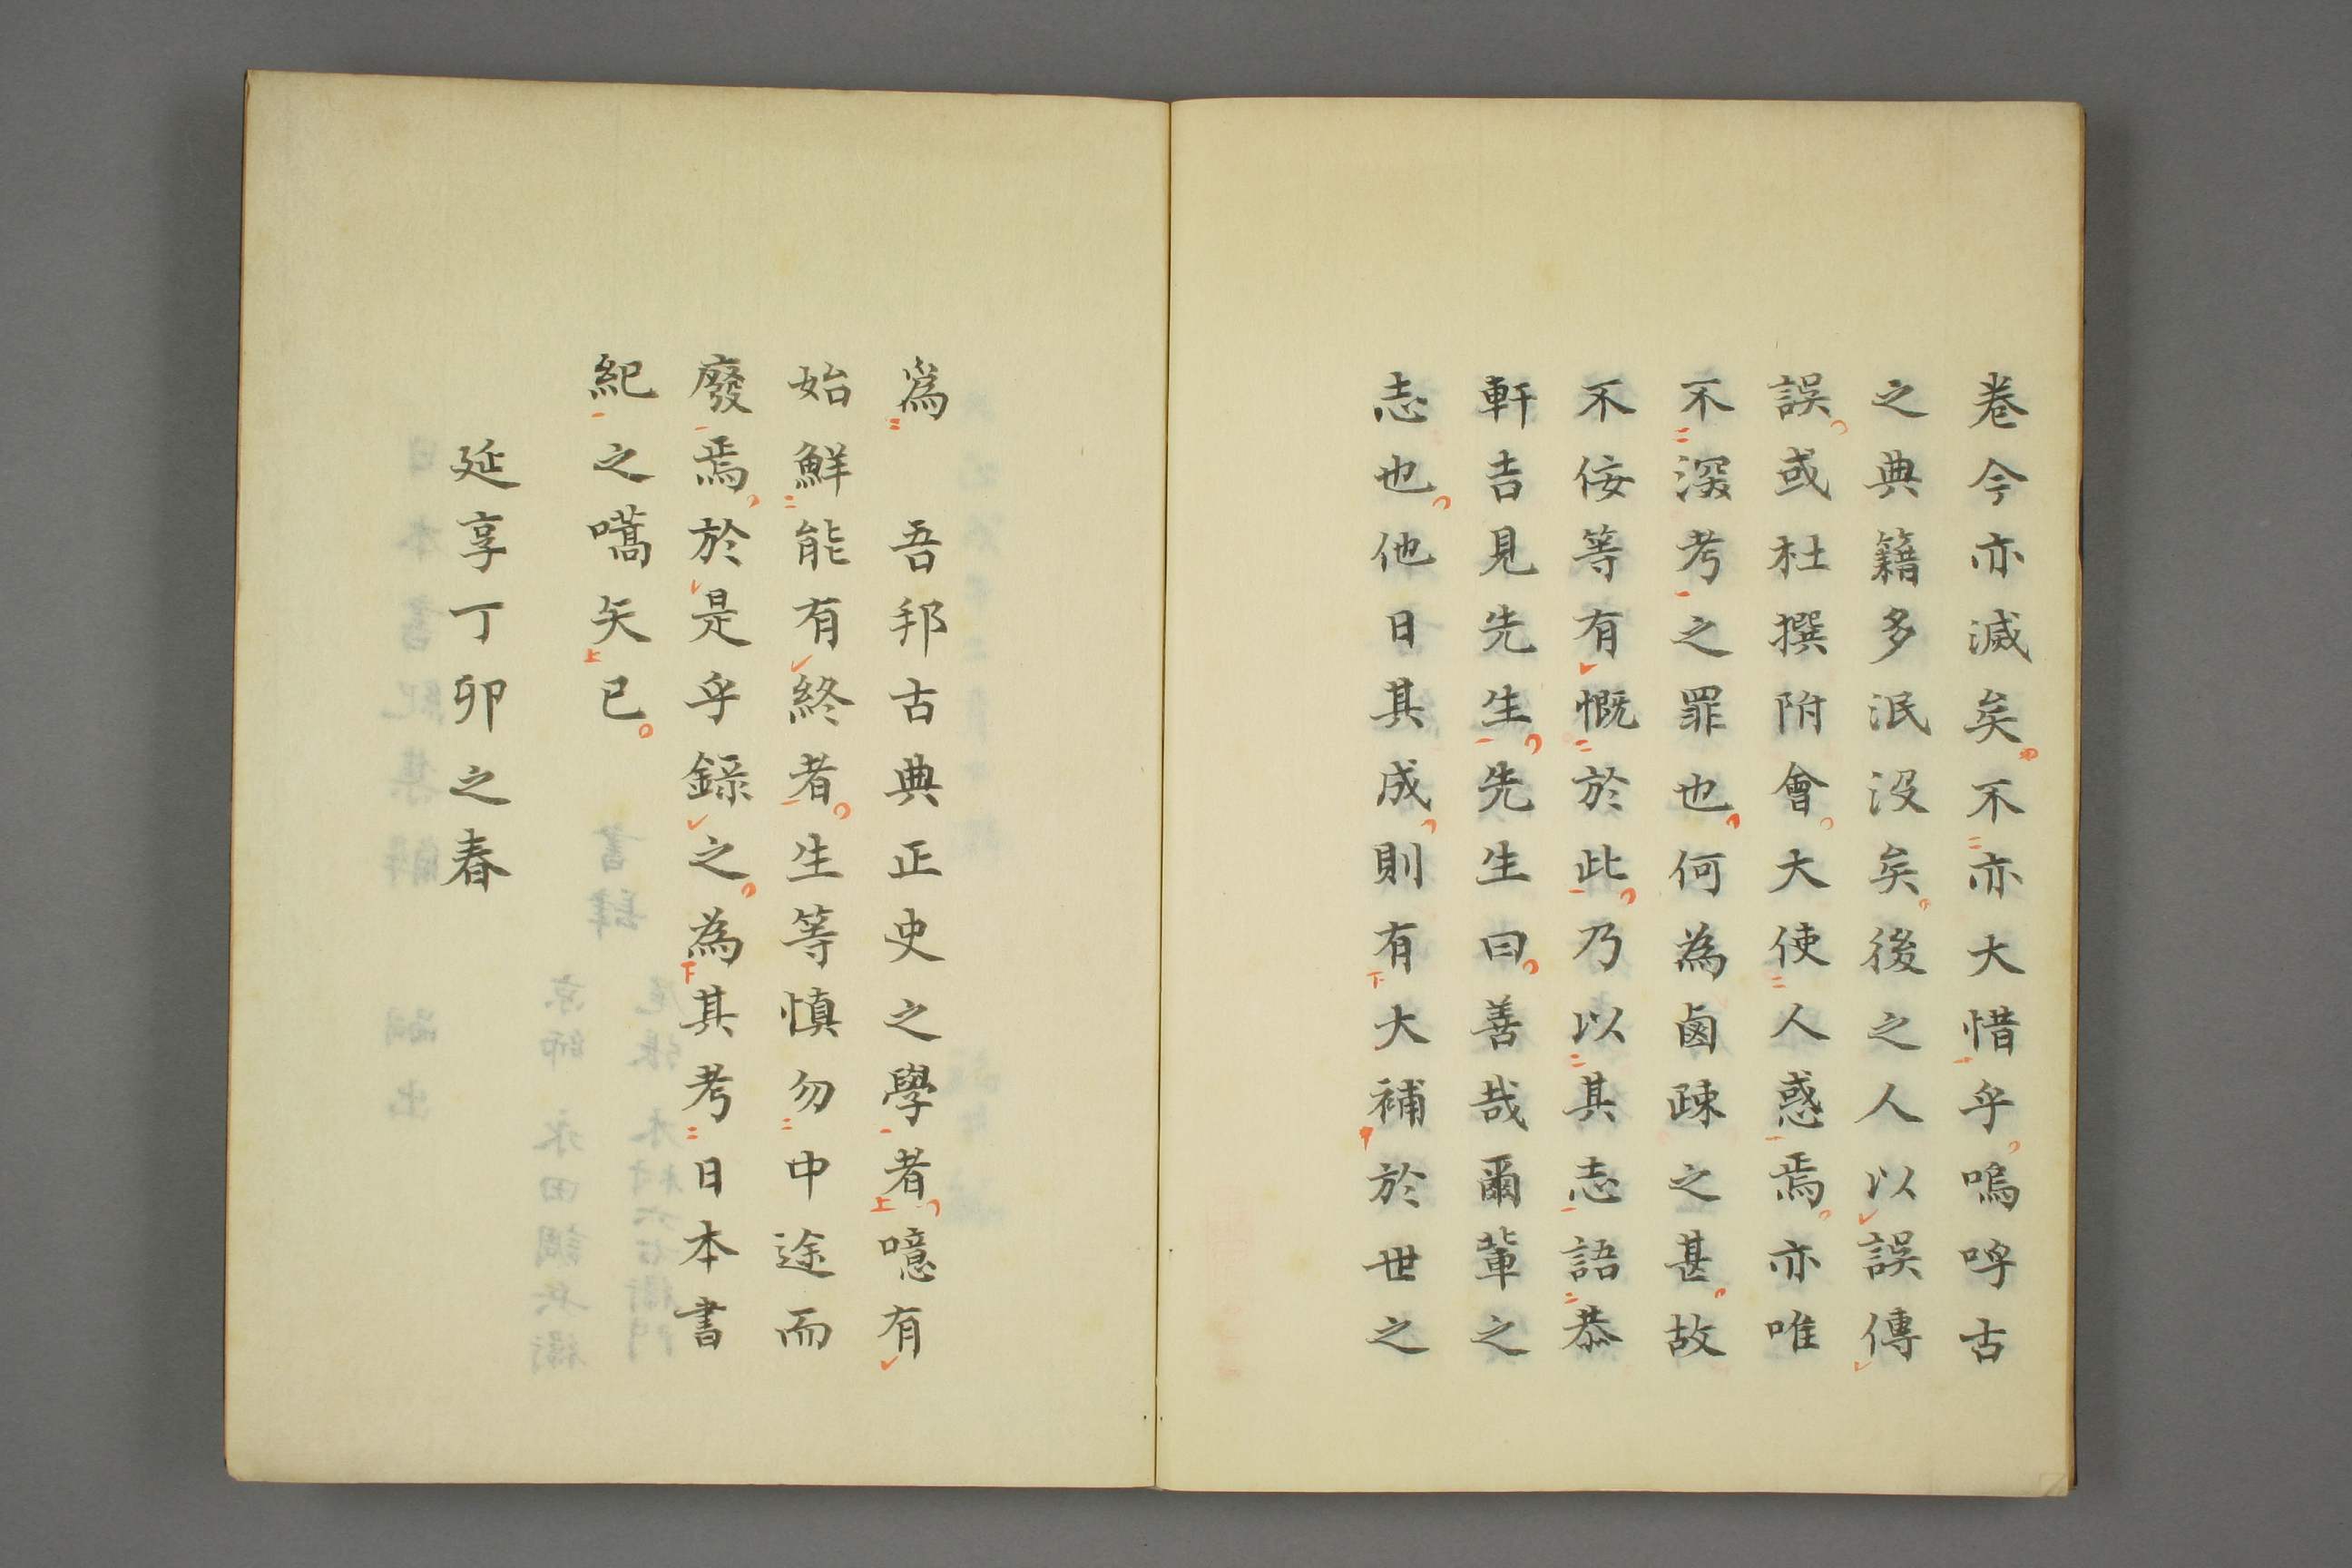 卷今亦滅矣不亦大惜乎嗚呼古
之典籍多泯没矣後之人以誤傳
誤或杜撰附會大使人惑焉亦唯
不深考之罪也何為鹵疎之甚故
不佞等有慨於此乃以其志語恭
軒吉見先生先生曰善哉爾輩之
志也他日其成則有大補於世之
為　吾邦古典正史之學者噫有
始鮮能有終者生等慎勿中途而
廢焉於是乎錄之為其考日本書
紀之嚆矢已
延享丁卯之春